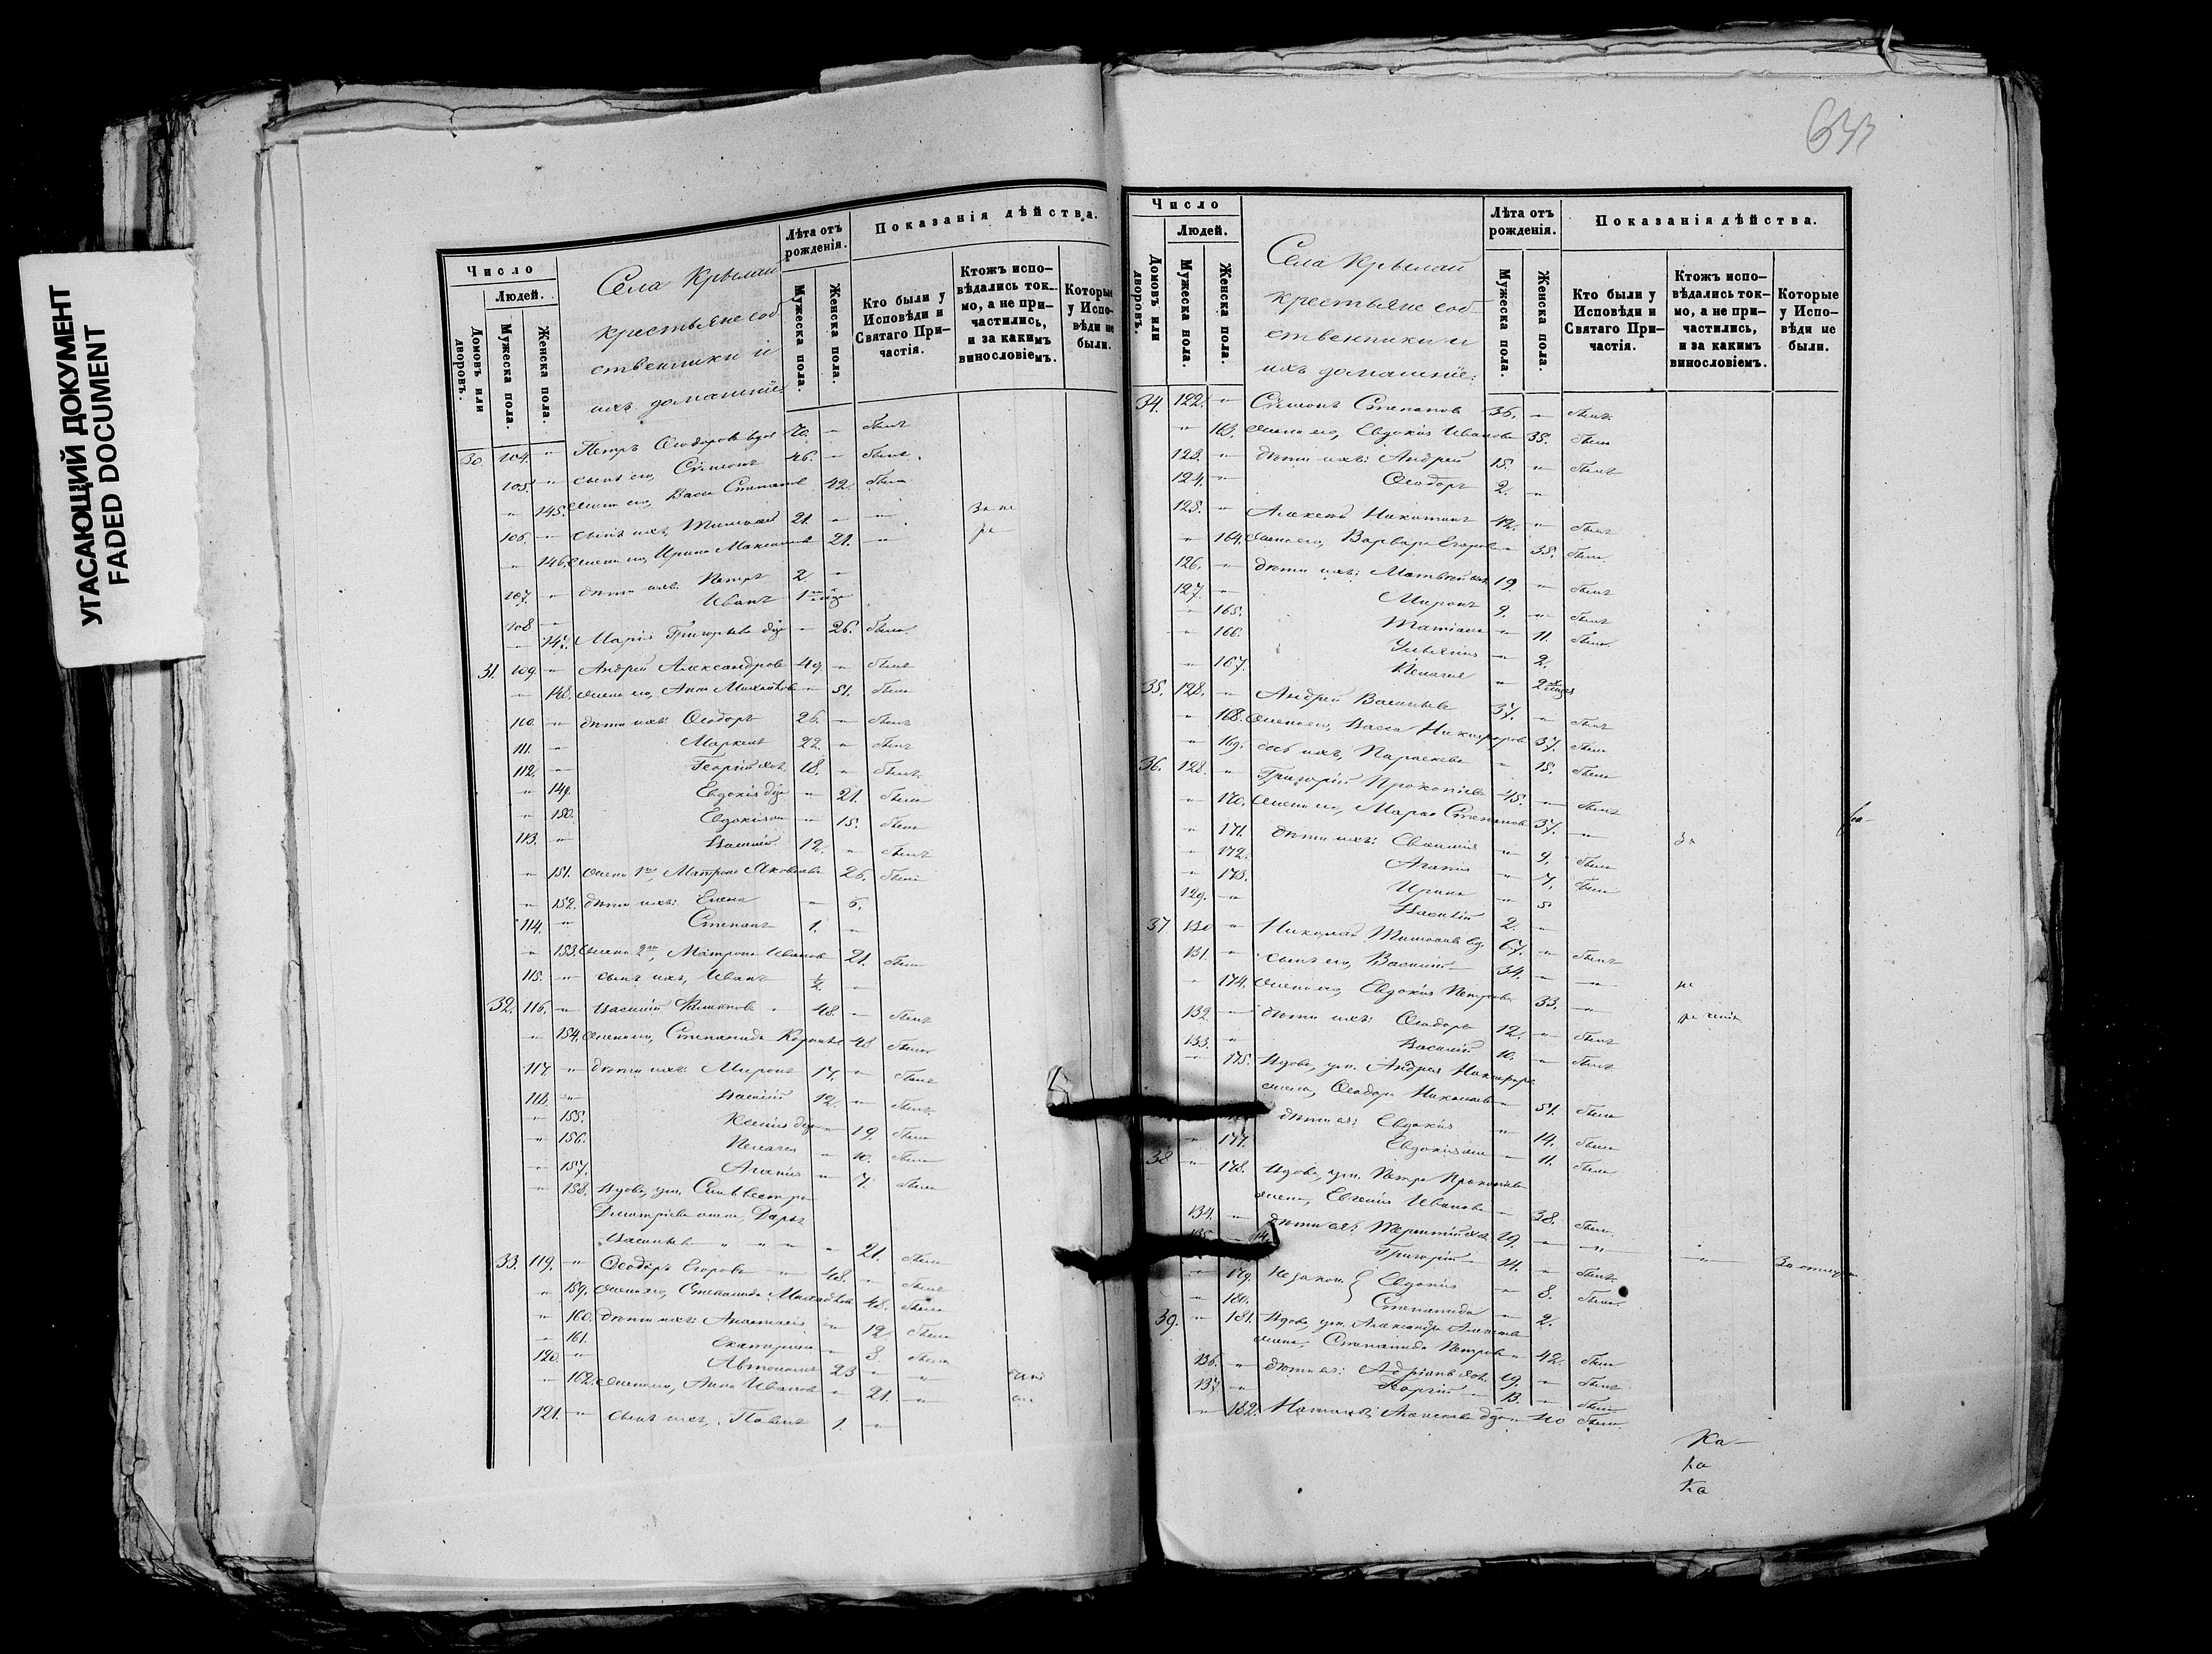 УГАСАЮЩИЙ ДОКУМЕНТ
FADED DOCUMENT
Число
Людей.
Домовъ или дворовъ.
Мужеска пола.
Женска пола.
Села Крылай
крестьяне соб
ственники и
ихъ домашніе
Лѣта отъ рожденія.
Мужеска пола.
Женска пола.
Показанія дѣйства.
Кто были у Исповѣди и Святаго При-частія.
Ктожъ испо-вѣдались ток-мо, а не при-частились, и за какимъ винословіемъ.
Которые у Испо-вѣди не были.
30. 104. " Петръ Ѳеодоровъ вдов 70. " былъ
105. " сынъ его, Сѵмеонъ 46. " былъ
" 145. жена его, Васса Степанов 42. была
106. " сынъ ихъ, 21. " "
" 146. жена его, Ирина Максимов 21. "
107. " дѣти ихъ: Петръ 2. "
108 " Иванъ 1
" 147. Марія Григорьева дѣв " 26. была
31. 109. " Андрей Александровъ 49. " былъ
" 148. жена его, Анна Михайлова " 51. была
110. " дѣти ихъ: Ѳеодоръ 26. " былъ
111. " Маркелъ 22. " былъ
112. " Георгій хол. 18. " былъ
" 149. Евдокія дѣв " 21. была
" 150. Евдокія " 15. была
113. " Василій 12. " былъ
" 151. жена 1го, Матрона Яковлева 26. была
" 152. дѣти ихъ: Елена " 6.
114. " Степанъ 1. "
" 153. жена 2го, Матрона Иванов 21. была
115. " сынъ ихъ, Иванъ ½. "
32. 116. " Василій 48. " былъ
" 154. жена его, Степанида 48 была
117. " дѣти ихъ: Миронъ 17. " былъ
118. " Василій 12. " былъ
" 155. Ксенія дѣв " 19. была
" 156. Пелагея " 10. была
" 157. Агапія " 7. была
" 158. Вдова, ум. Сильвестра
Димитріева жена, Дарья
Васильева " " " 21. была
33. 119. " Ѳеодоръ Егоровъ 48. " былъ
" 159. жена его, Степанида Михайлов 48. была
" 160. дѣти ихъ: Анастасія " 12. была
" 161. Екатерина " 8. была
120. " Автономъ 23 " "
" 162. жена его, Анна Иванов " 21. "
121. " сынъ ихъ, Павелъ 1. "
Число
Людей.
Домовъ или дворовъ.
Мужеска пола.
Женска пола.
Села Крылай
крестьяне соб-
ственники и
ихъ домашніе:
Лѣта отъ рожденія.
Мужеска пола.
Женска пола.
Показанія дѣйства.
Кто были у Исповѣди и Святаго При-частія.
Ктожъ испо-вѣдались ток-мо, а не при-частились, и за какимъ винословіемъ.
Которые у Испо-вѣди не были.
34. 122. " Сѵмеонъ Степановъ 36. " былъ
" 163. жена его, Евдокія Иванова 35. была
123. " дѣти ихъ: Андрей 15. " былъ
124. " Ѳеодоръ 2. "
125. " Алексѣй Никитинъ 42. " былъ
" 164. жена его, Варвара Егорова " 38. была
126. " дѣти ихъ: Матвей хол. 19. " былъ
127. " Миронъ 9. " былъ
" 165. Татіана " 11. была
" 166. Іуліянія " 2.
" 167. Пелагея " 2
35. 128. " Андрей Васильевъ 37. " былъ
" 168. жена его, Васса Никифоров 37. была
" 169. дочь ихъ, Параскева " 15. была
36. 128. " Григорій Прокопіевъ 45. " былъ
" 170. жена его, Марья Степанов 37. " За
" 171. дѣти ихъ: " 9. была
" 172. Агапія " 7. была
" 173. Ирина " 5
129. " Василій 2. "
37 130 " Николай вд. 67. " былъ
131. " сынъ его, Василій 34. " "
" 174. жена его, Евдокія Петрова 33. "
132. " дѣти ихъ: Ѳеодоръ 12. " былъ
133. " Василій 10. " былъ
" 175. Вдова, ум. Андрея Никифоро
жена, Ѳеодора Николаев " 51. была
дѣти ея: Евдокія " 14. была
" 177. Евдокія " 11. была
38 " 178. Вдова, ум. Петра Прокопіева
жена, Евгенія Иванова " 38. была
134. " дѣти ея: Терентій хол. 19. " "
135. Григорій 14. " былъ
" 179. Незакон. } Евдокія " 8. была
" 180. Степанида " 2.
39. " 181. Вдова, ум. Александра
жена, Степанида Петров " 42. была
136. " дѣти ея: Адріанъ хол. 19. " былъ
137. " Георгій 13. " былъ
" 182. Алексѣева дѣв " 40 была
Ка-
ка
ка